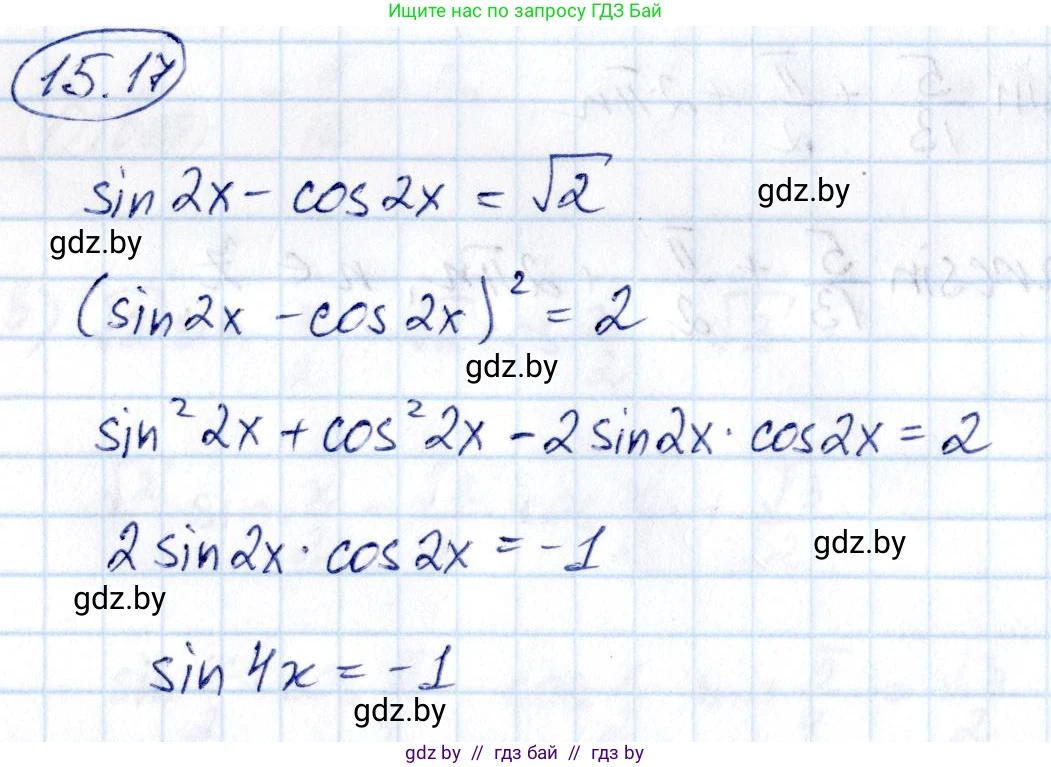 Ищите нас по запросу ГДЗ Бай
15.17
sin 2x - cos 2x = √2
gdz.by
gdz.by
(sin 2x - cos 2x)² = 2
gdz.by
sin² 2x + cos² 2x - 2 sin 2x · cos 2x = 2
2 sin 2x · cos 2x = -1
gdz.by
gdz.by
sin 4x = -1
gdz.by
gdz.by // гдз бай // гдз by